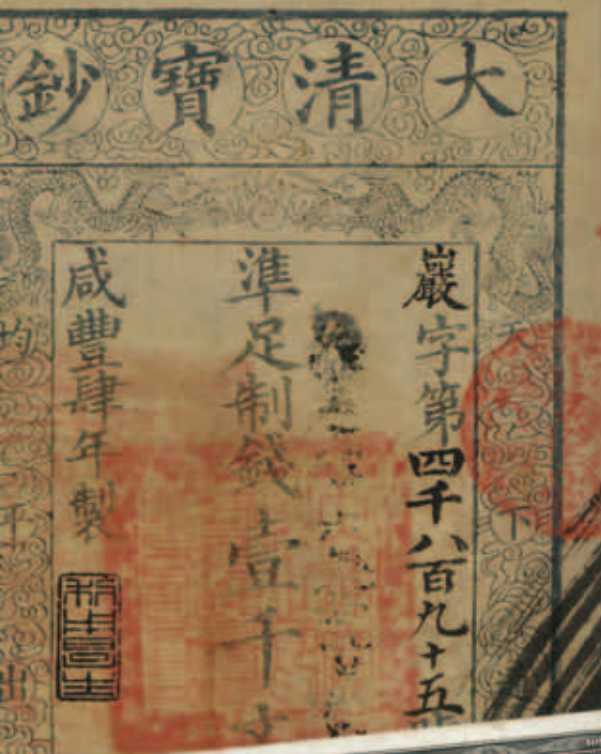 大清寶鈔
天下
巖字第四千八百九十五
準足制錢壹千
咸豐肆年製
均平出